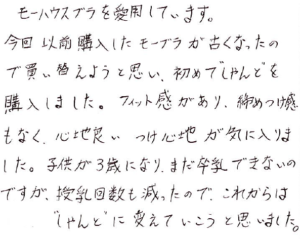 モーハウスブラを愛用しています。
今回以前購入したモーブラが古くなったの
で買い替えようと思い、初めて"しゃんと"を
購入しました。フィット感があり、締めつけ感
もなく、心地良いつけ心地が気に入りま
した。子供が3歳になり、まだ卒乳できないの
ですが、授乳回数も減ったので、これからは
"しゃんと"に変えていこうと思いました。